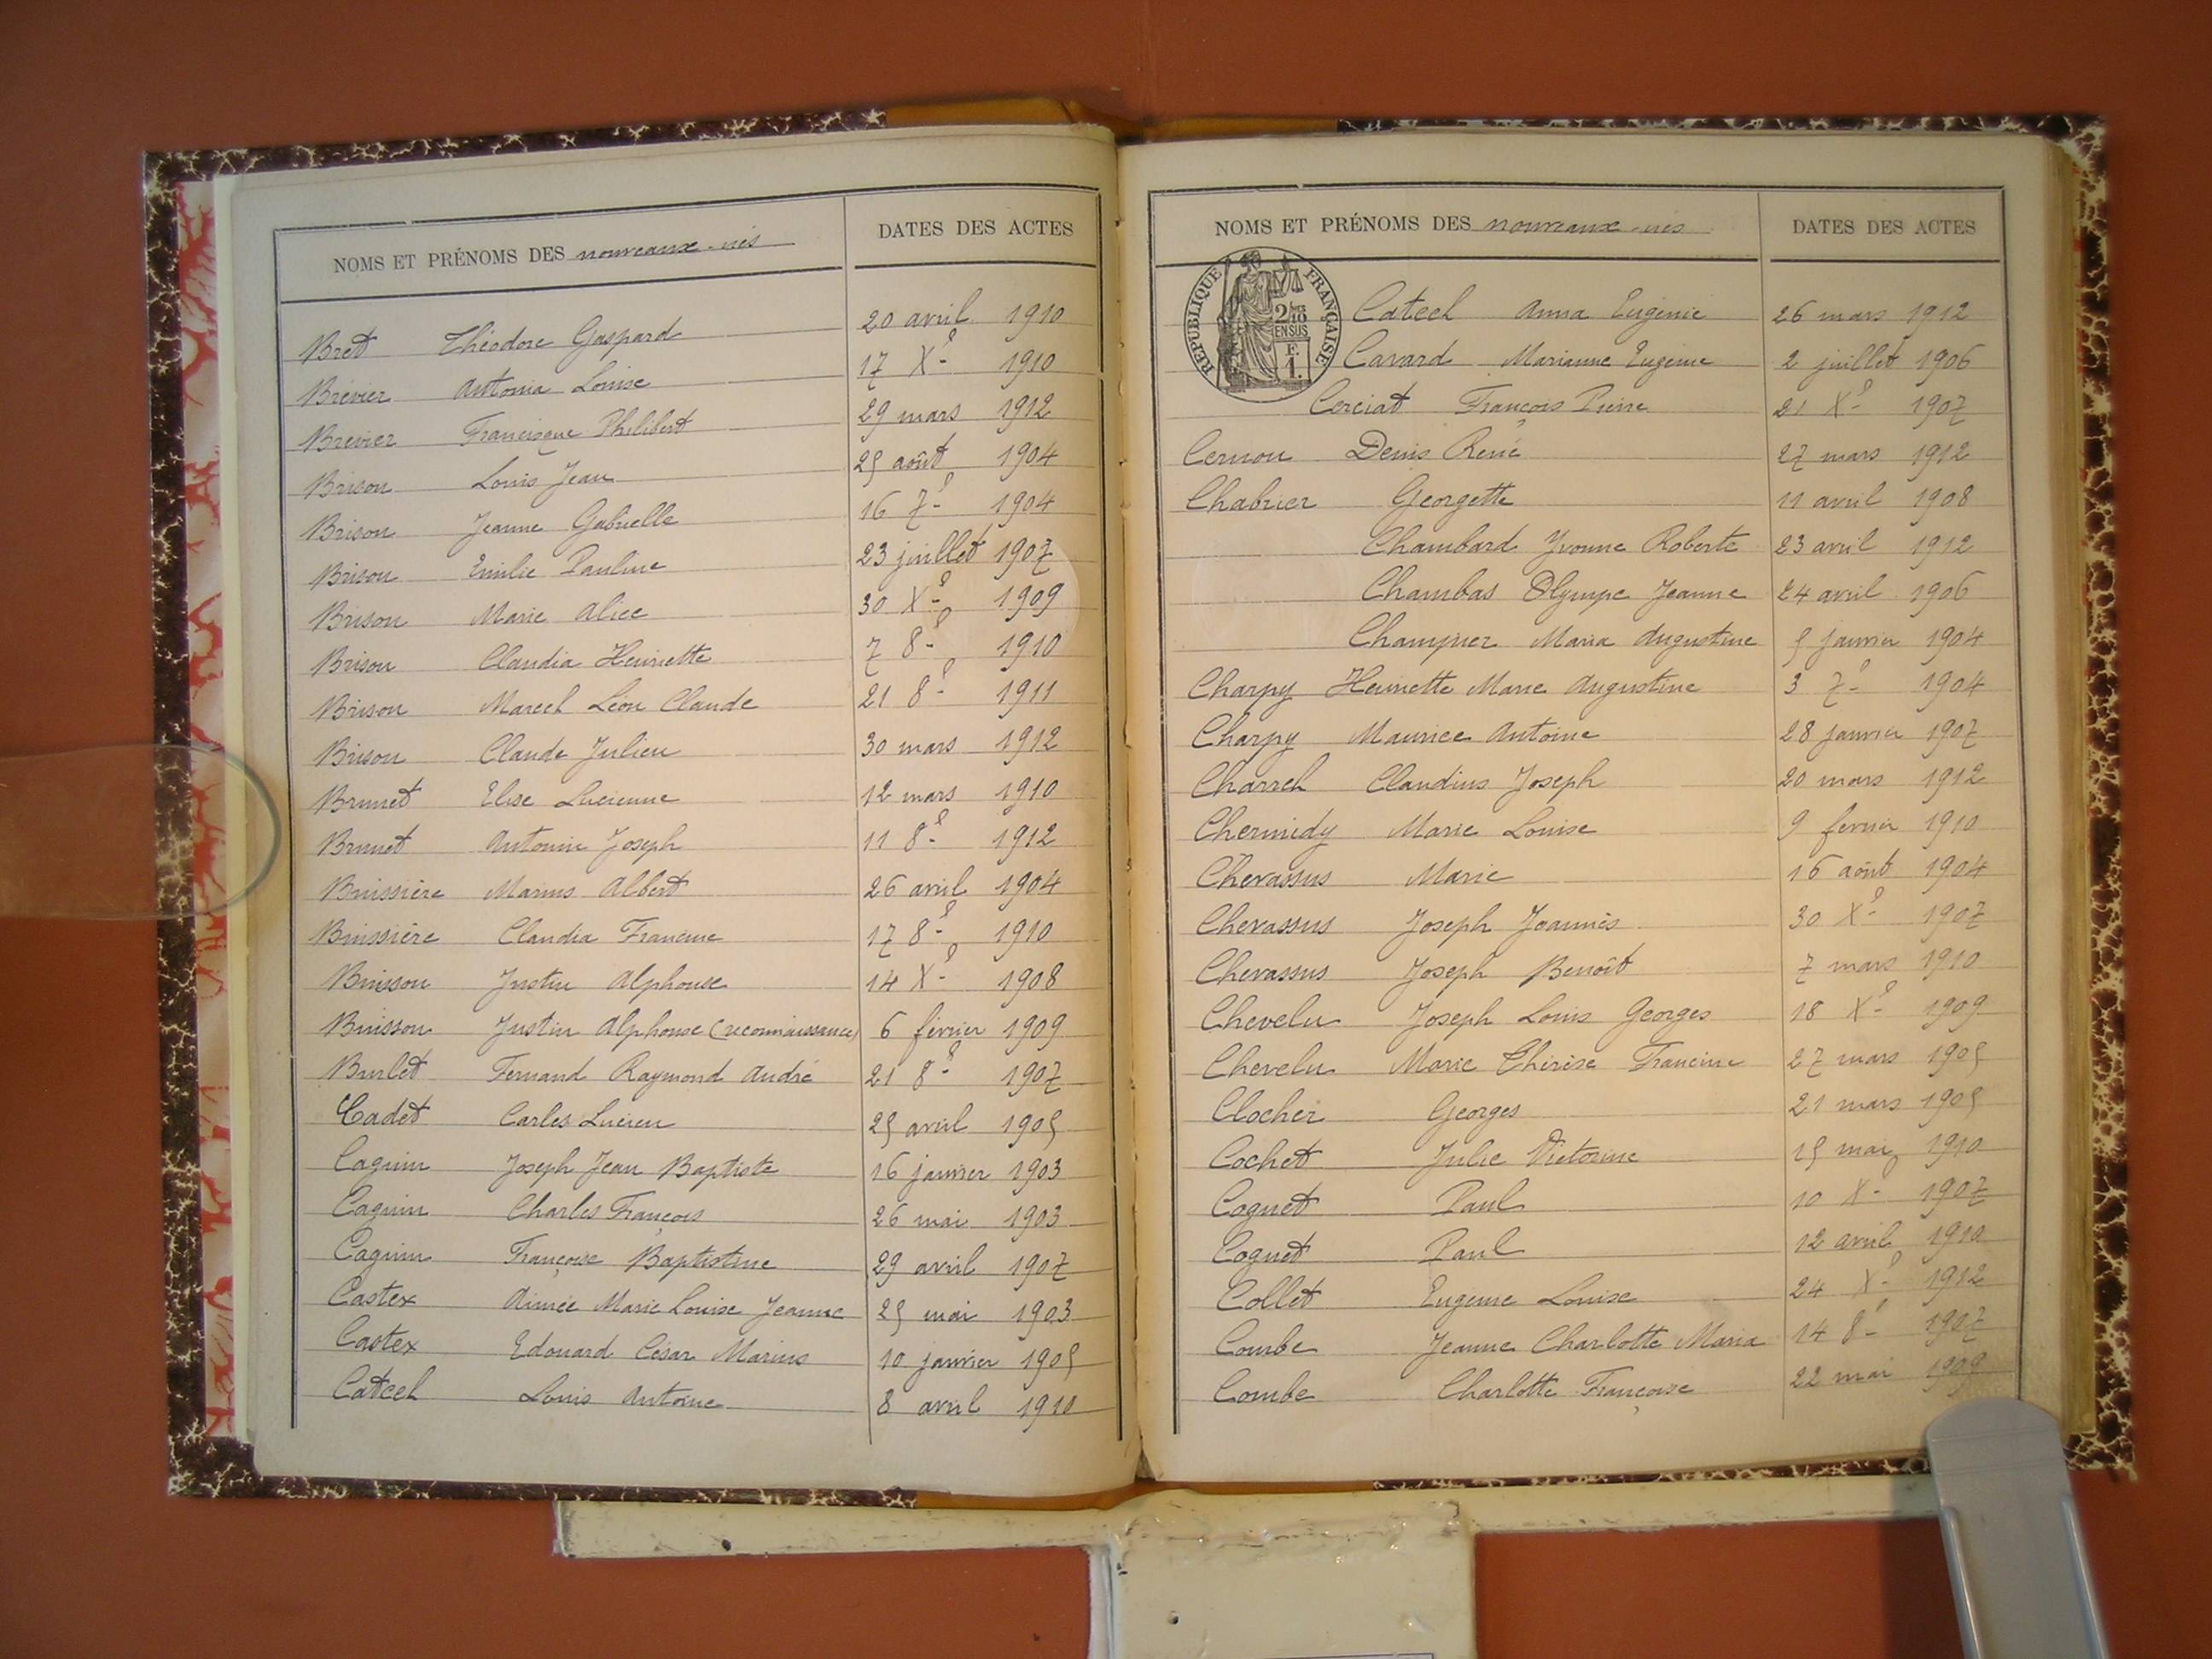 NOMS ET PRÉNOMS DES nouveaux-nés DATES DES ACTES
Bret Théodore Gaspard 20 avril 1910
Brévier Antonia Louise 17 Xe 1910
Brevier Francisque Philibert 29 mars 1912
Brison Louis Jean 25 août 1904
Brison Jeanne Gabrielle 16 7e 1904
Brison Emilie Pauline 23 juillet 1907
Brison Marie Alice 30 Xe 1909
Brison Claudia Henriette 7 8e 1910
Brison Marcel Léon Claude 21 8e 1911
Brison Claude Julien 30 mars 1912
Brunet Elise Lucienne 12 mars 1910
Brunet Antonin Joseph 11 8e 1912
Buissière Marius Albert 26 avril 1904
Buissière Claudia Francine 17 8e 1910
Buisson Justin Alphonse 14 Xe 1908
Buisson Justin Alphonse (reconnaissance) 6 février 1909
Burlet Fernand Raymond André 21 8e 1907
Cadot Carles Lucien 25 avril 1905
Caguin Joseph Jean Baptiste 16 janvier 1903
Caguin Charles François 26 mai 1903
Caguin Françoise Baptistine 29 avril 1907
Castex Aimée Marie Louise Jeanne 25 mai 1903
Castex Edouard César Marius 10 janvier 1905
Catcel Louis Antoine 8 avril 1910
NOMS ET PRÉNOMS DES nouveaux-nés DATES DES ACTES
RÉPUBLIQUE FRANÇAISE
2/10
EN SUS
F.
1.
Catcel Anna Eugénie 26 mars 1912
Cavard Marianne Eugénie 2 juillet 1906
Cerciat François Pierre 21 Xe 1907
Cernon Denis René 27 mars 1912
Chabrier Georgette 11 avril 1908
Chambard Yvonne Roberte 23 avril 1912
Chambas Olympe Jeanne 24 avril 1906
Champier Maria Augustine 5 janvier 1904
Charpy Henriette Marie Augustine 3 7e 1904
Charpy Maurice Antoine 28 janvier 1907
Charrel Claudius Joseph 20 mars 1912
Chermidy Marie Louise 9 février 1910
Chevassus Marie 16 août 1904
Chevassus Joseph Joannès 30 Xe 1907
Chevassus Joseph Benoît 7 mars 1910
Chevelu Joseph Louis Georges 18 Xe 1909
Chevelu Marie Thérèse Francine 27 mars 1905
Clocher Georges 21 mars 1905
Cochet Julie Victorine 15 mai 1910
Coguet Paul 10 Xe 1907
Coguet Paul 12 avril 1910
Collet Eugénie Louise 24 Xe 1912
Combe Jeanne Charlotte Maria 14 8e 1907
Combe Charlotte Françoise 22 mai 1909